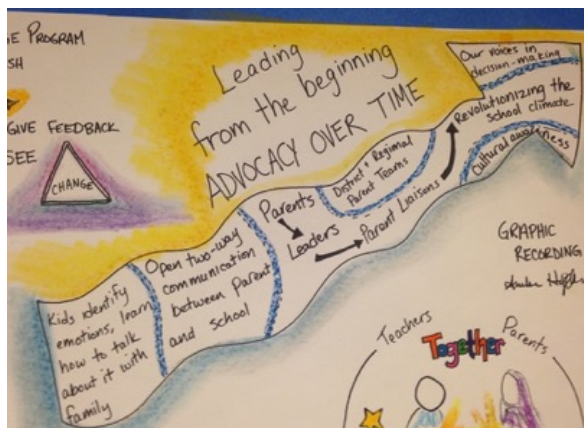 GE PROGRAM
SH
GIVE FEEDBACK
SEE
CHANGE
Leading
from the beginning
ADVOCACY OVER TIME
Kids identify
emotions, learn
how to talk
about it with
family
Open two-way
communication
between Parent
and school
Parents
Leaders
Parent Liaisons
District + Regional
Parent Teams
Our voices in
decision-making
Revolutionizing the
school climate
Cultural awareness
GRAPHIC
RECORDING
Teachers
Together
Parents